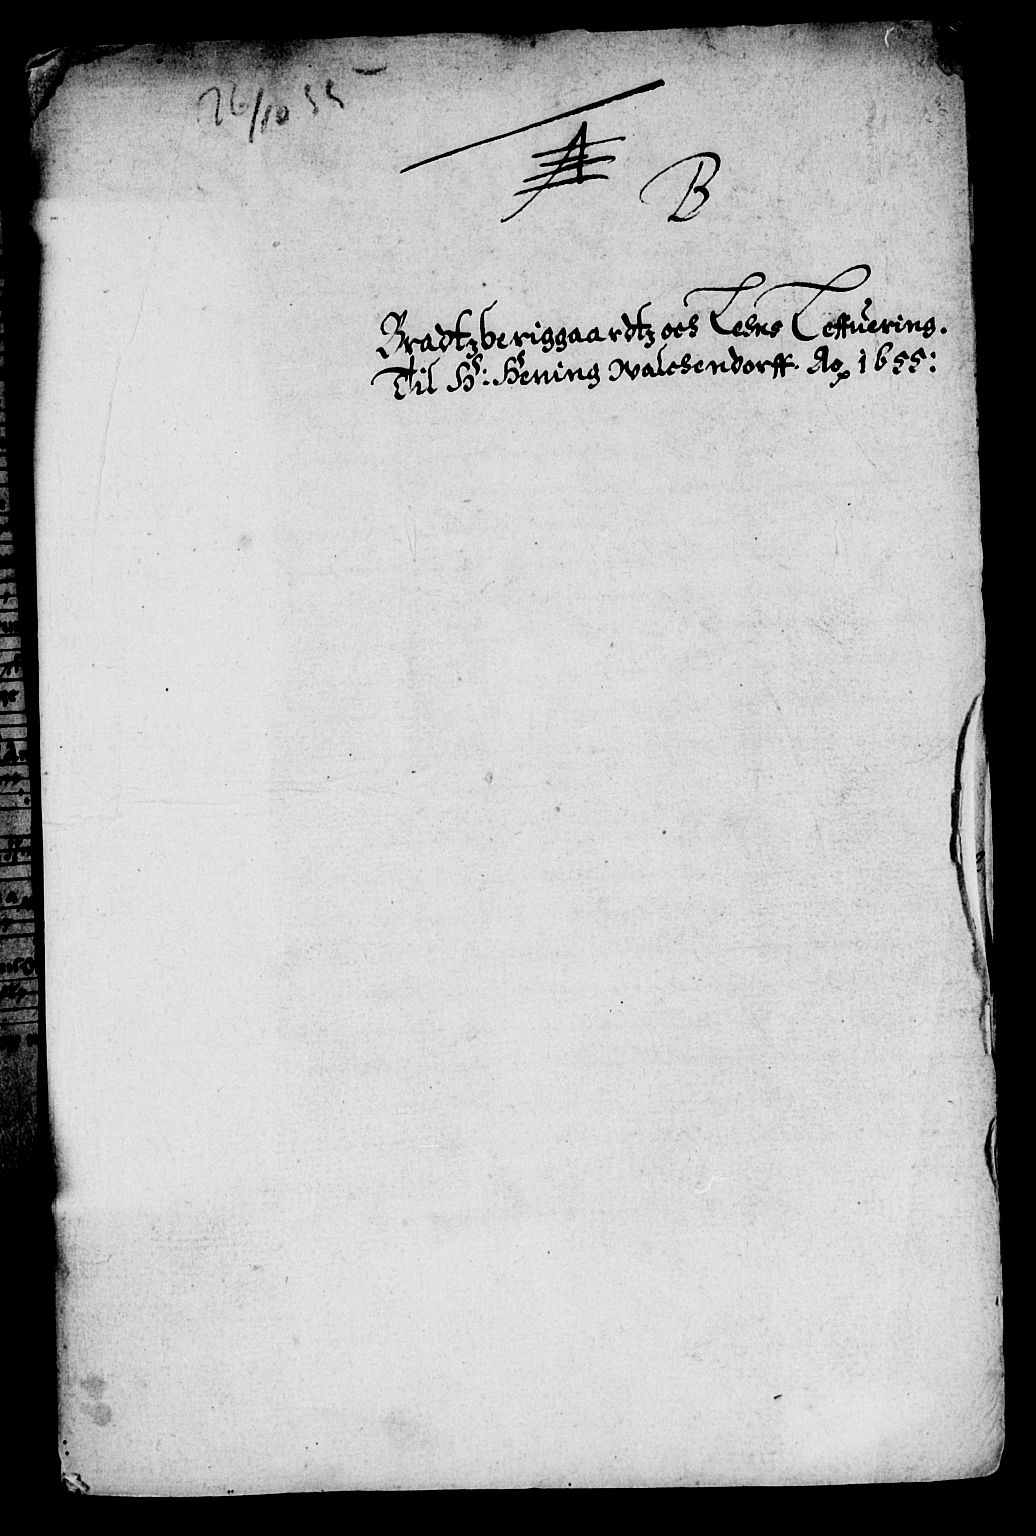 26/10 55
A
B
Bradtzberiggaardtz och Lehns Leffuering.
Til H: Hening Walchendorff. Ao 1655: